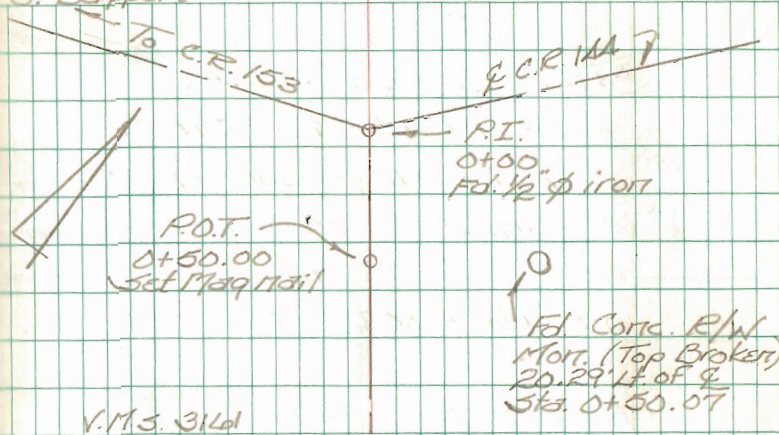 To C.R. 153
℄ C.R. 144
P.I.
0+00
Fd. 1/2" ϕ iron
P.O.T.
0+50.00
Set Mag nail
Fd. Conc. R/W
Mon. (Top Broken)
20.29' Lt. of ℄
Sta. 0+50.07
V.M.S. 3161